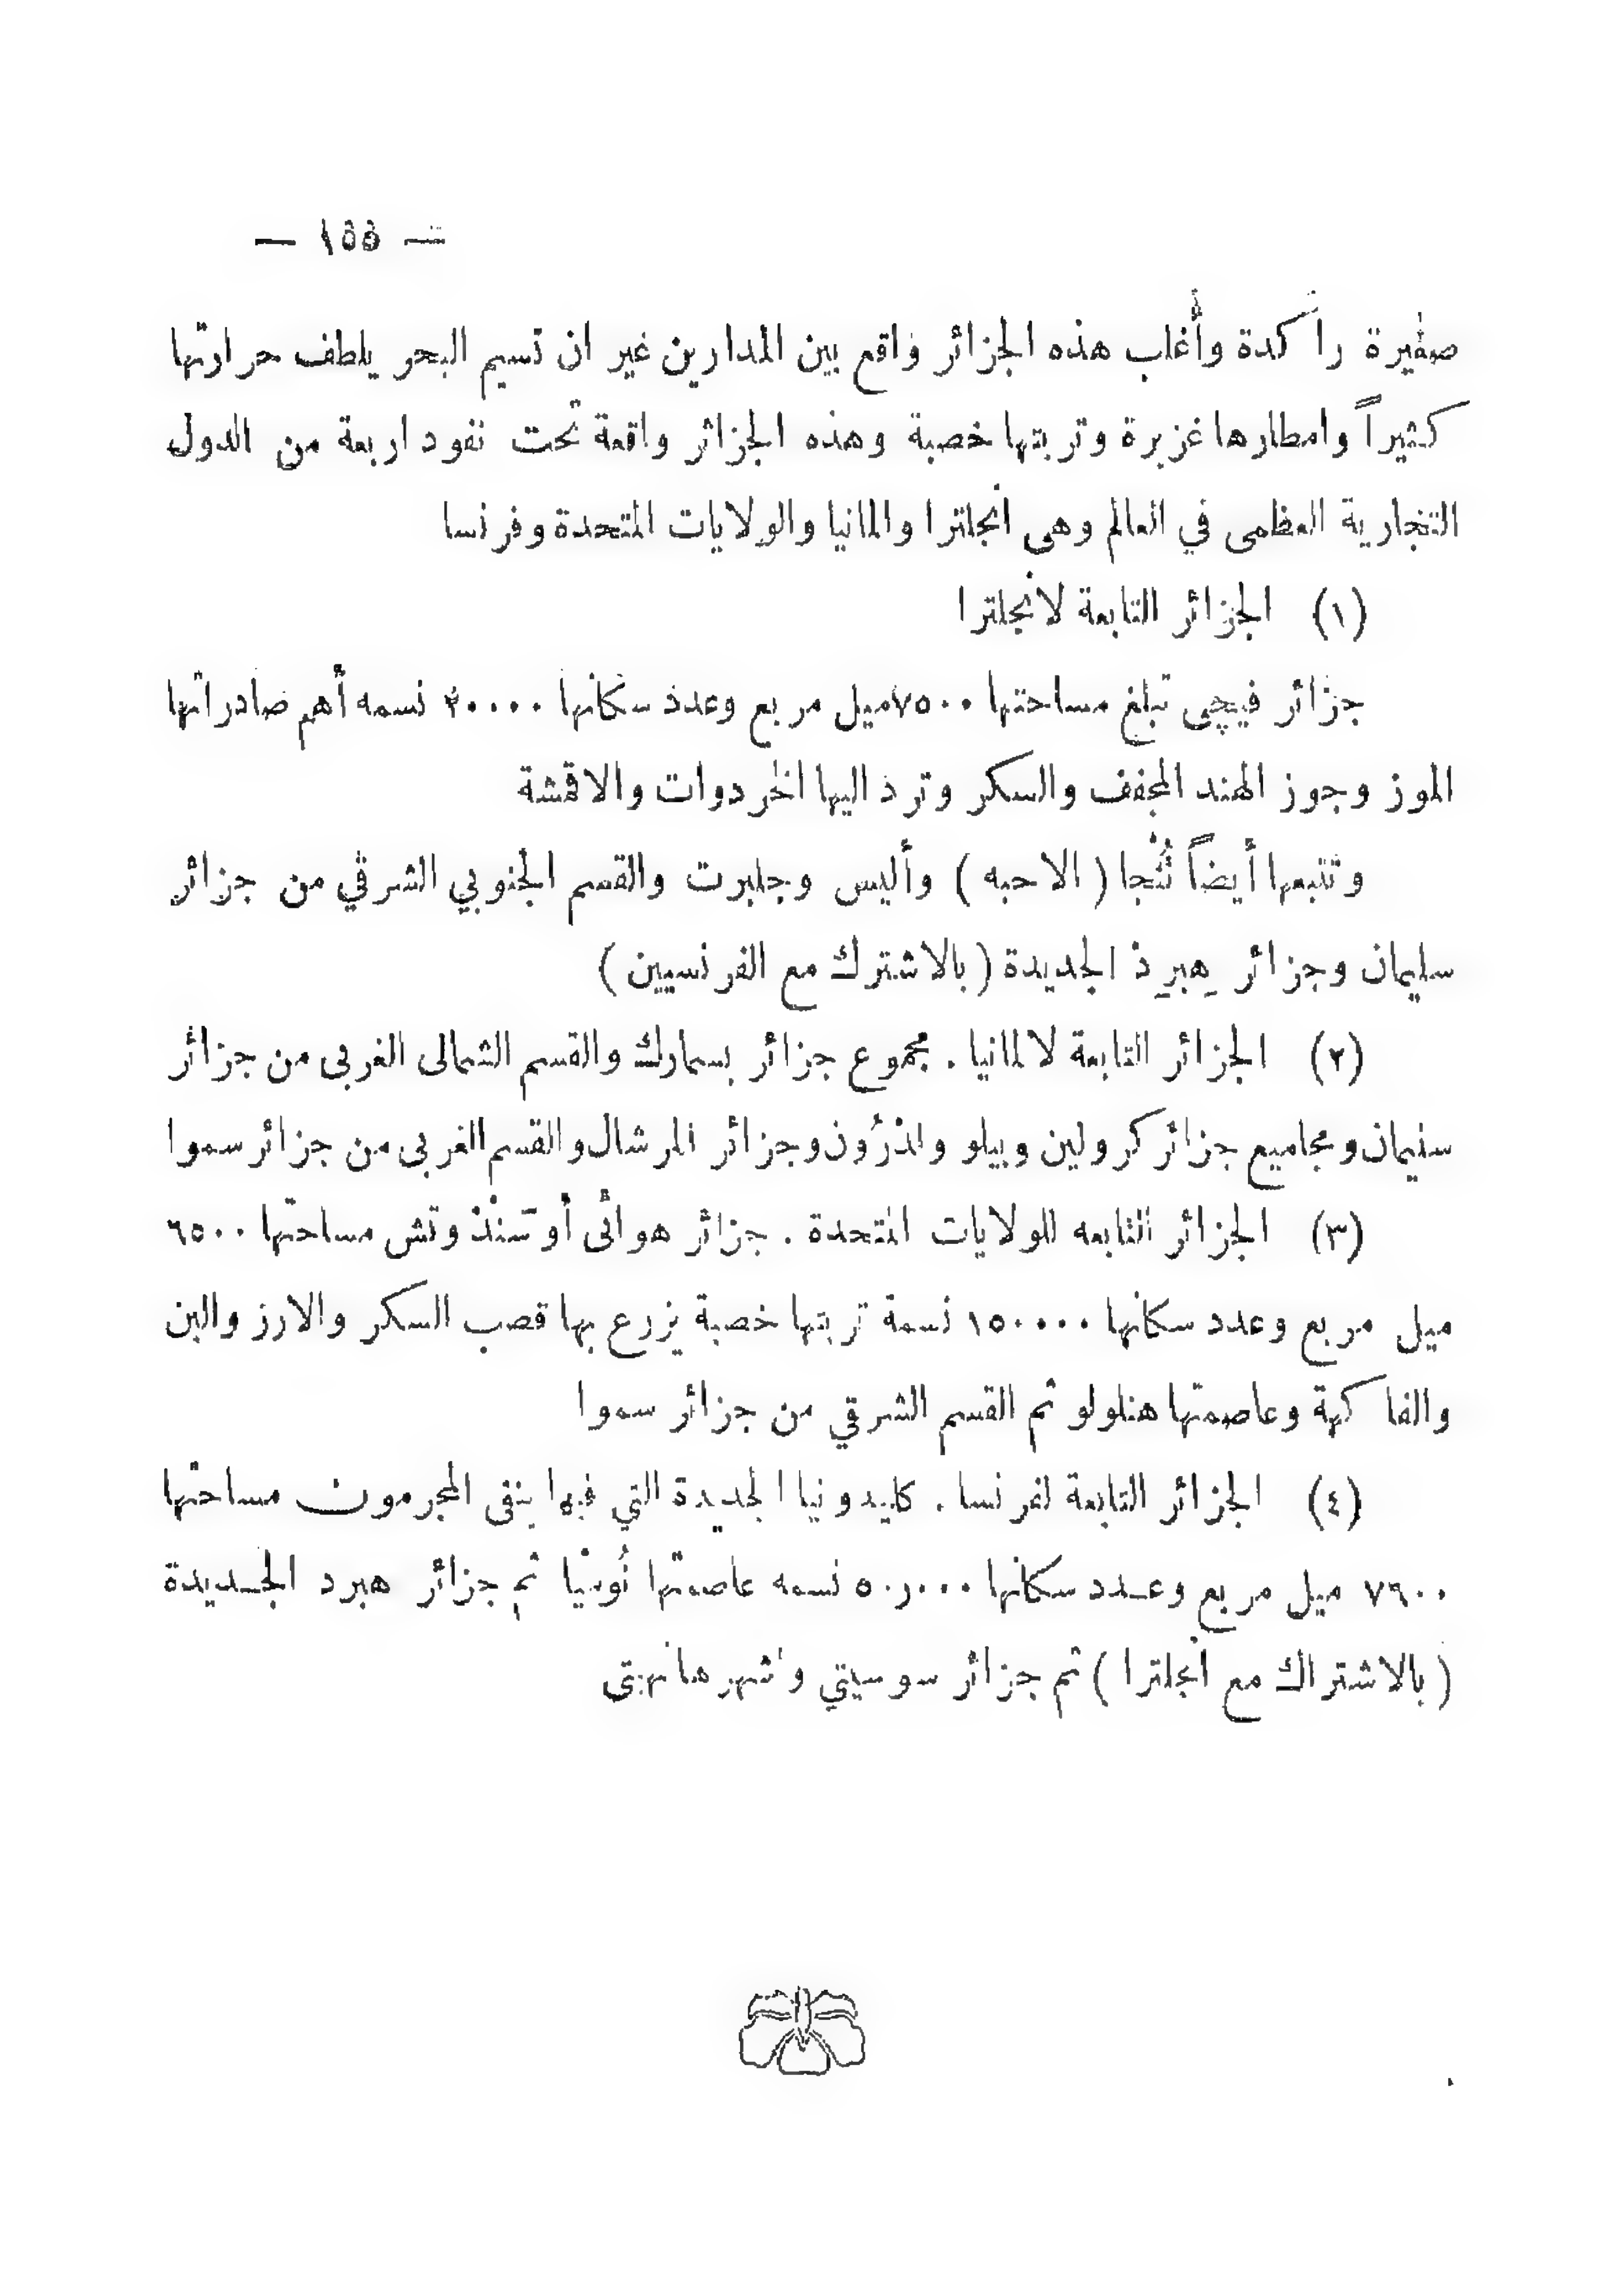 — ١٥٥ —
صغيرة راكدة وأغلب هذه الجزائر واقع بين المدارين غير ان نسيم البحر يلطف حرارتها
كثيراً وامطارها غزيرة وتربتها خصبة وهذه الجزائر واقعة تحت نفود اربعة من الدول
التجارية العظمى في العالم وهى انجلترا والمانيا والولايات المتحدة وفرنسا
(١) الجزائر التابعة لانجلترا
جزائر فيچى تبلغ مساحتها ٧٥٠٠ ميل مربع وعدد سكانها ٢٠٠٠٠ نسمه أهم صادراتها
الموز وجوز الهند المجفف والسكر وترد اليها الخردوات والاقمشة
وتتبعها أيضاً تُنْجا ( الاحبه ) وأليس وجلبرت والقسم الجنوبي الشرقي من جزائر
سليمان وجزائر هِبرِدْ الجديدة ( بالاشترك مع الفرنسيين )
(٢) الجزائر التابعة لالمانيا . مجموع جزائر بسمارك والقسم الشمالى الغربى من جزائر
سليمان ومجاميع جزائر كرولين وبيلو ولذرُون وجزائر المرشال والقسم الغربى من جزائر سموا
(٣) الجزائر التابعه للولايات المتحدة . جزائر هوائى أو سَنْدْوتش مساحتها ٦٥٠٠
ميل مربع وعدد سكانها ١٥٠٠٠٠ نسمة تربتها خصبة يزرع بها قصب السكر والارز والبن
والفاكهة وعاصمتها هنلولو ثم القسم الشرقي من جزائر سموا
(٤) الجزائر التابعة لفرنسا . كليدونيا الجديدة التي فيها ينفى المجرمون مساحتها
٧٦٠٠ ميل مربع وعدد سكانها ٥٠٫٠٠٠ نسمه عاصمتها نُوميْا ثم جزائر هبرد الجديدة
( بالاشتراك مع انجلترا ) ثم جزائر سوسيتي واشهرها تهيتى